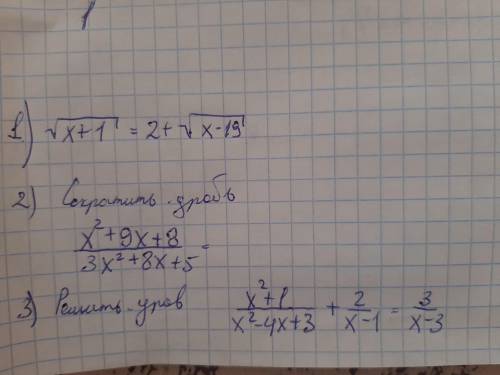 1
1) √(x+1) = 2+ √(x-19)
2) Сократить дробь
(x²+9x+8)/(3x²+8x+5) =
3) Решить урав (x²+1)/(x²-4x+3) + 2/(x-1) = 3/(x-3)